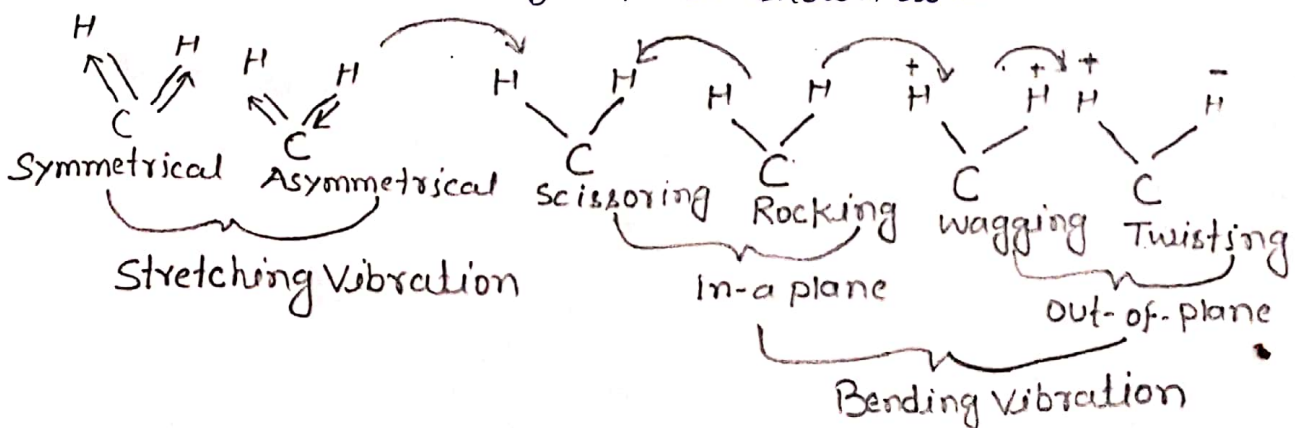 H H H H H H H H + H + H + H - H
C C C C C C
Symmetrical Asymmetrical Scissoring Rocking wagging Twisting
Stretching Vibration In-a plane Out-of-plane
Bending Vibration